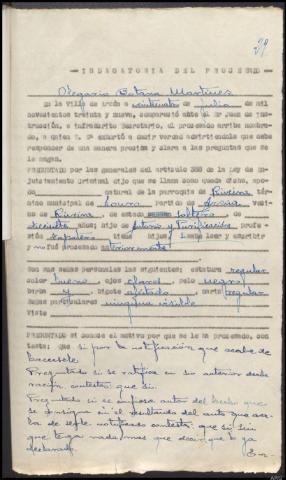 29
— INDAGATORIA DEL PROCESADO —
Olegario Martínez
En la Villa de a veintinueve de julio de mil
novecientos treinta y nueve, compareció ante el Sr Juez de ins-
trucción, e infrascrito Secretario, el procesado arriba nombra-
do, a quien S. Sª exhortó a decir verdad advirtiendole que debe
responder de una manera precisa y clara a las preguntas que se
le hagan.
PREGUNTADO por las generales del artículo 388 de la Ley de En-
juiciamiento Criminal dijo que se llama como queda dicho, apo-
da natural de la parroquia de Riveira tér-
mino municipal de partido de vecino
de Riveira, de estado soltero de
años; hijo de y Purificación profe-
sión zapatero tiene hijos y sabe leer y escribir
y no fué procesado anteriormente
Son sus señas personales las siguientes; estatura regular
color bueno, ojos pelo negro
barba y bigote afeitado nariz regular
Señas particulares ninguna visible
Viste
PREGUNTADO si conoce el motivo por que se le ha procesado, con-
testa: que sí por la notificación que acaba de
hacersele.
Preguntado si se ratifica en su anterior decla-
ración, contesta: que si.
Preguntado si se confiesa autor del hecho que
se consigna en el resultando del auto que aca-
ba de serle notificado contesta: que si sin
que tenga nada mas que decir que lo ya
declarado.